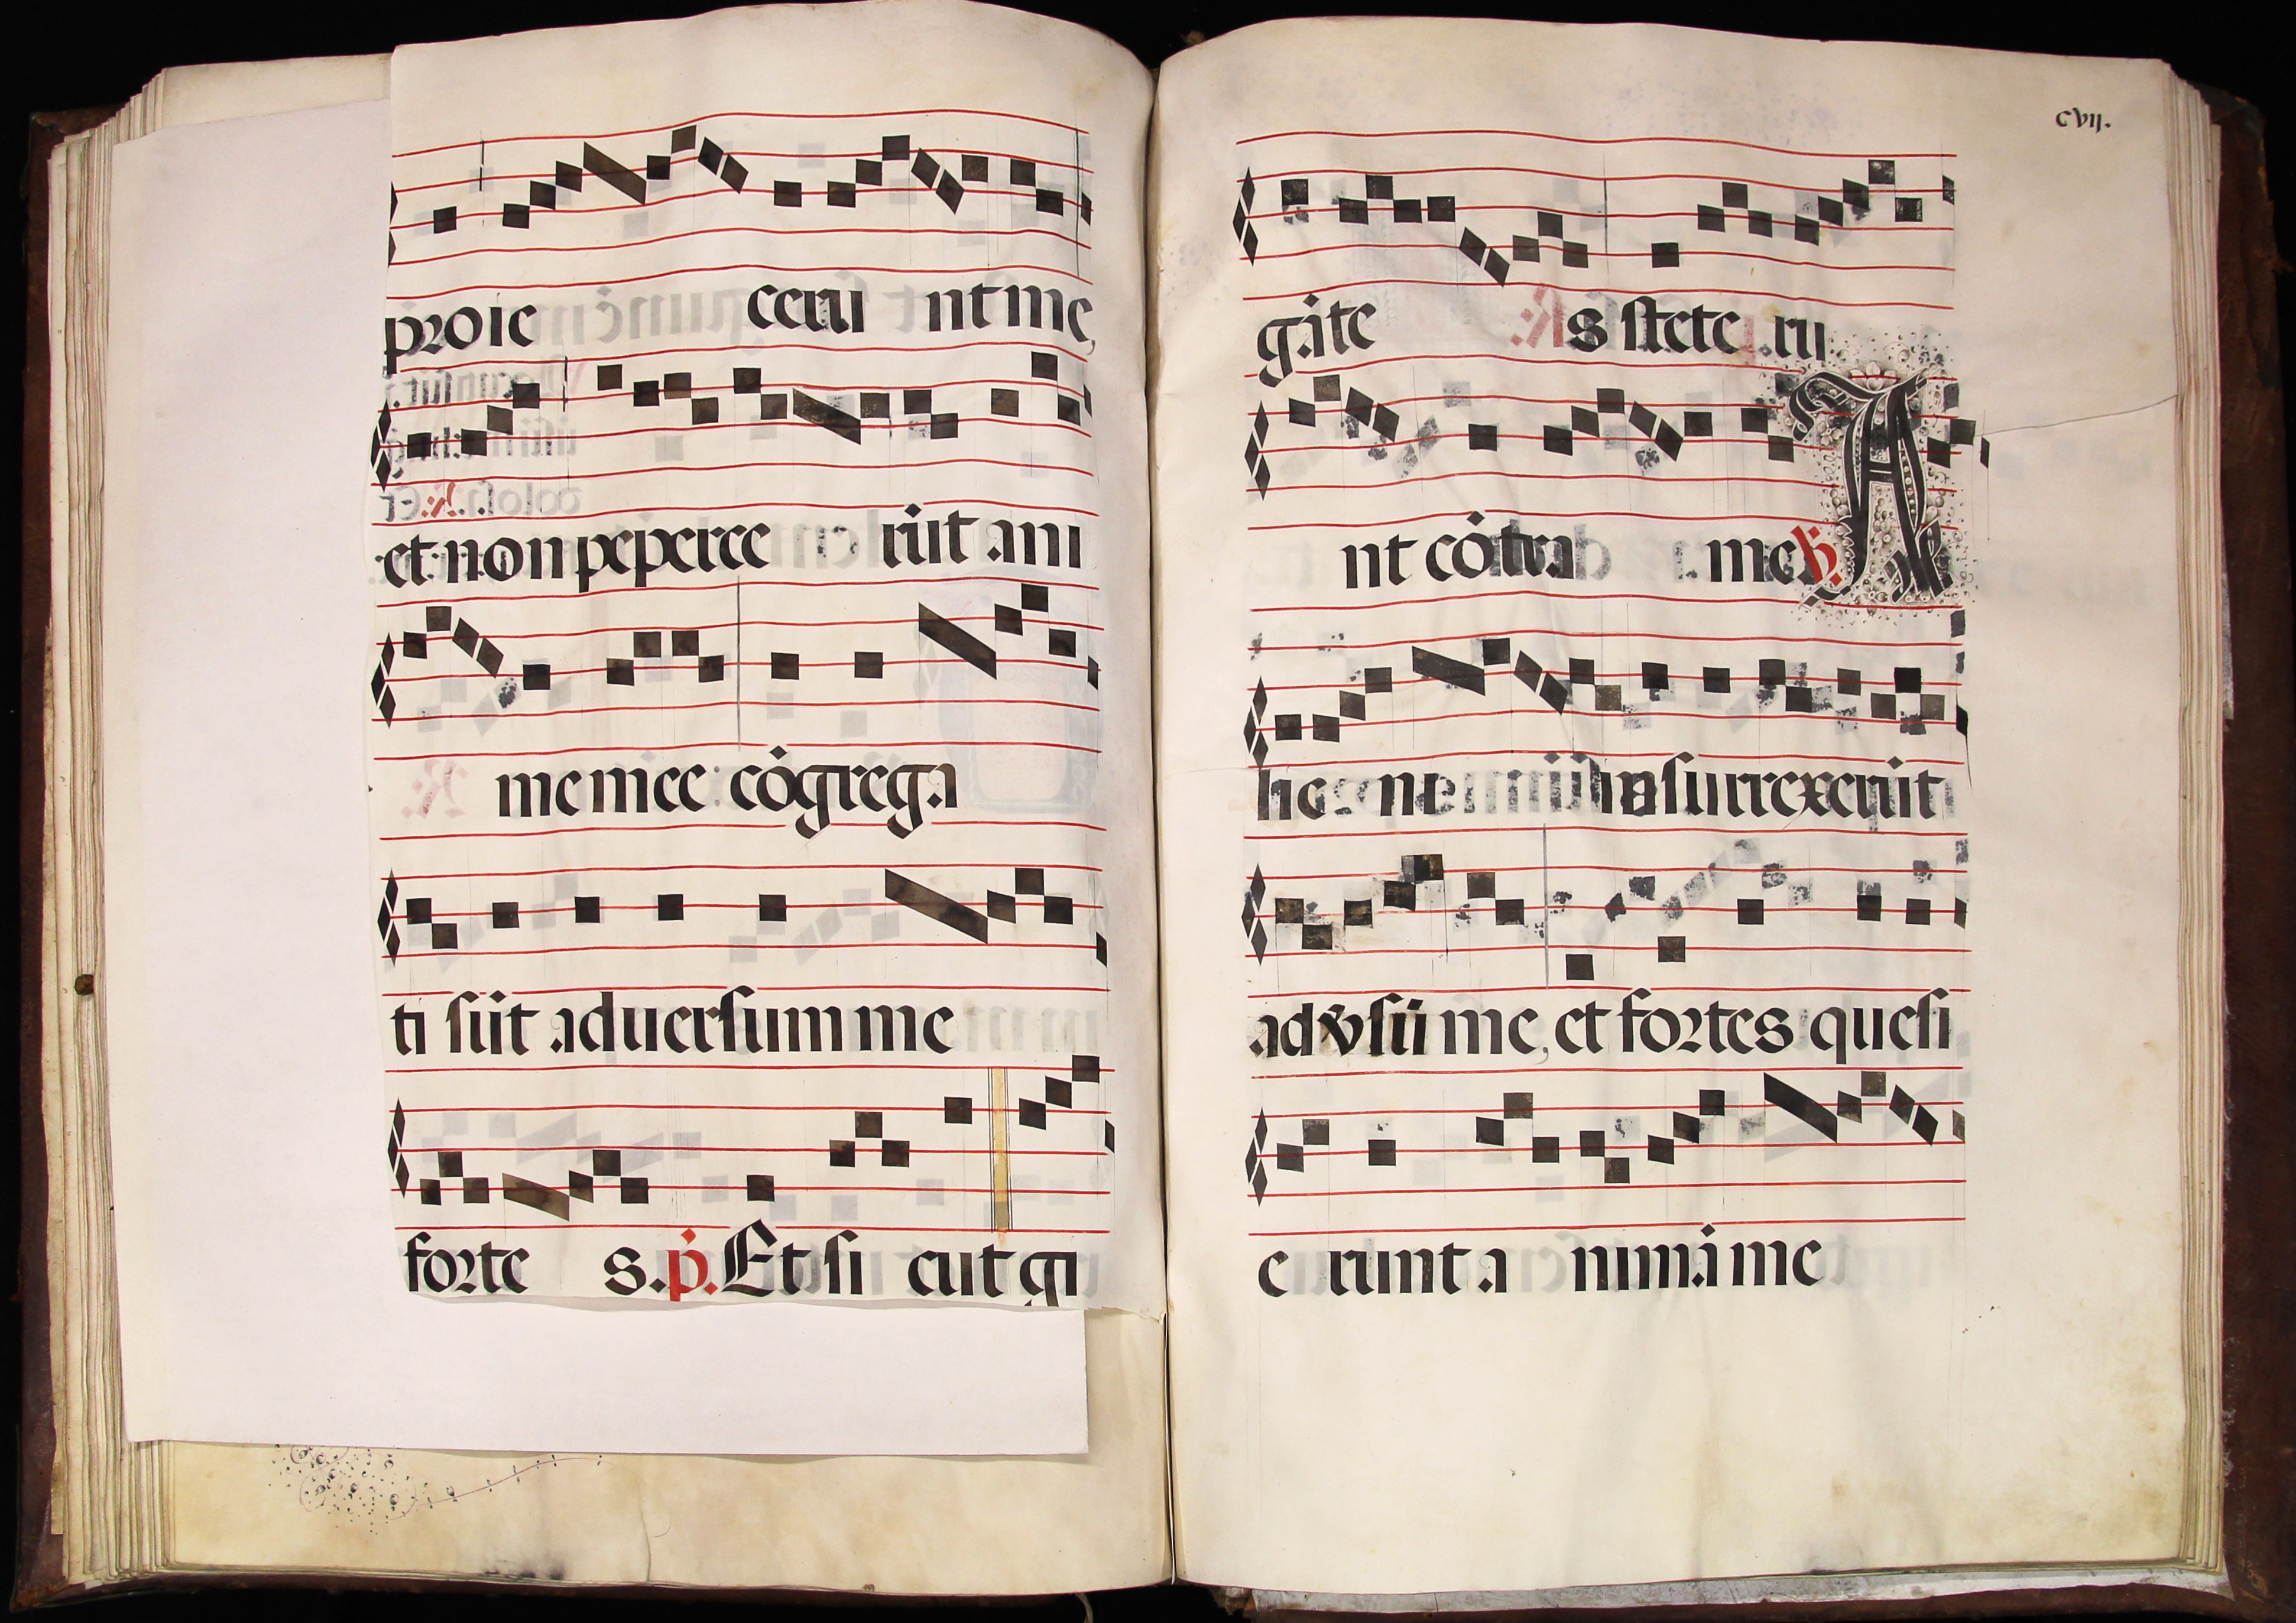 proie ceru nt me,
et non peperce rūt ani
me mee cōgrega
ti sūt aduersum me
forte s. p̄. Et si cut gi
cvij.
gāte s stete ru
nt cōtra me ℣. A
lie ni insurrexerūt
advsū me, et fortes quesi
e runt a nimā me